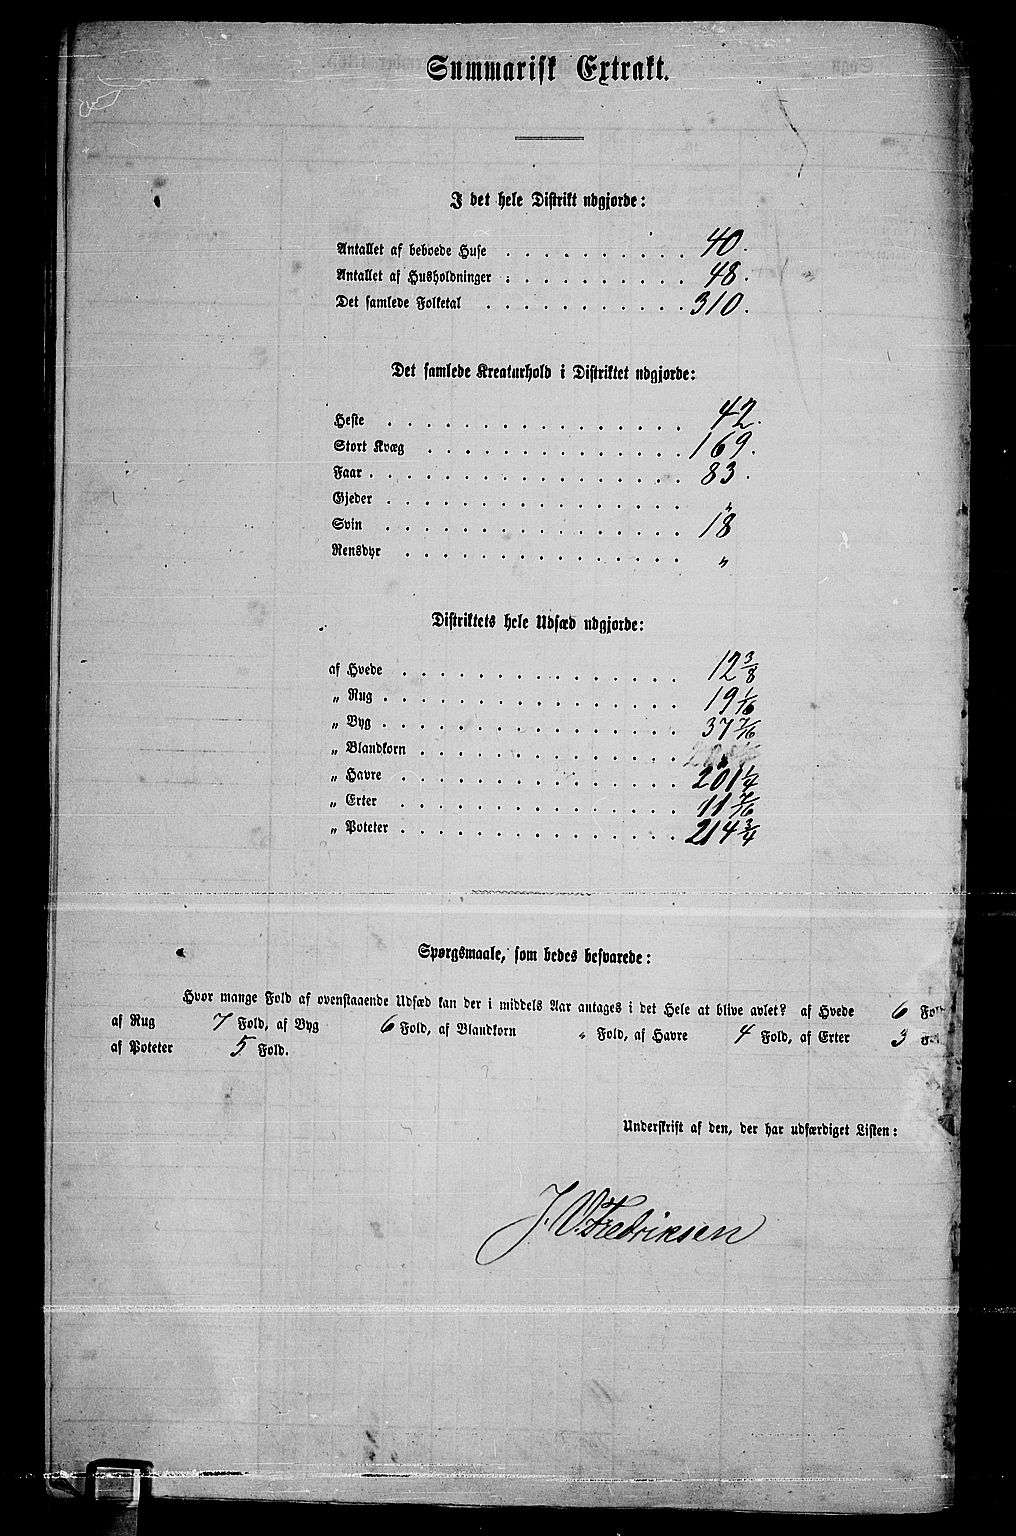 Summarisk Extrakt.
I det hele Distrikt udgjorde:
Antallet af beboede Huse . . . . . . . . . . 40.
Antallet af Husholdninger . . . . . . . . . . 48.
Det samlede Folketal . . . . . . . . . . . 310.
Det samlede Kreaturhold i Distriktet udgjorde:
Heste . . . . . . . . . . . . . . . . 42.
Stort Kvæg . . . . . . . . . . . . . . 169.
Faar . . . . . . . . . . . . . . . . . 83.
Gjeder . . . . . . . . . . . . . . . . „
Svin . . . . . . . . . . . . . . . . 18
Rensdyr . . . . . . . . . . . . . . . „
Distriktets hele Udsæd udgjorde:
af Hvede . . . . . . . . . . . . . . . 12 3/8
„ Rug . . . . . . . . . . . . . . . . 19 1/16
„ Byg . . . . . . . . . . . . . . . . 37 7/16
„ Blandkorn . . . . . . . . . . . . . .
„ Havre . . . . . . . . . . . . . . . 201 1/4
„ Erter . . . . . . . . . . . . . . . 11 7/16
„ Poteter . . . . . . . . . . . . . . . 214 3/4
Spørgsmaale, som bedes besvarede:
Hvor mange Fold af ovenstaaende Udsæd kan der i middels Aar antages i det Hele at blive avlet? af Hvede 6 Fold
af Rug 7 Fold, af Byg 6 Fold, af Blandkorn „ Fold, af Havre 4 Fold, af Erter 3 Fol
af Poteter 5 Fold.
Underskrift af den, der har udfærdiget Listen:
J. V. Fredriksen